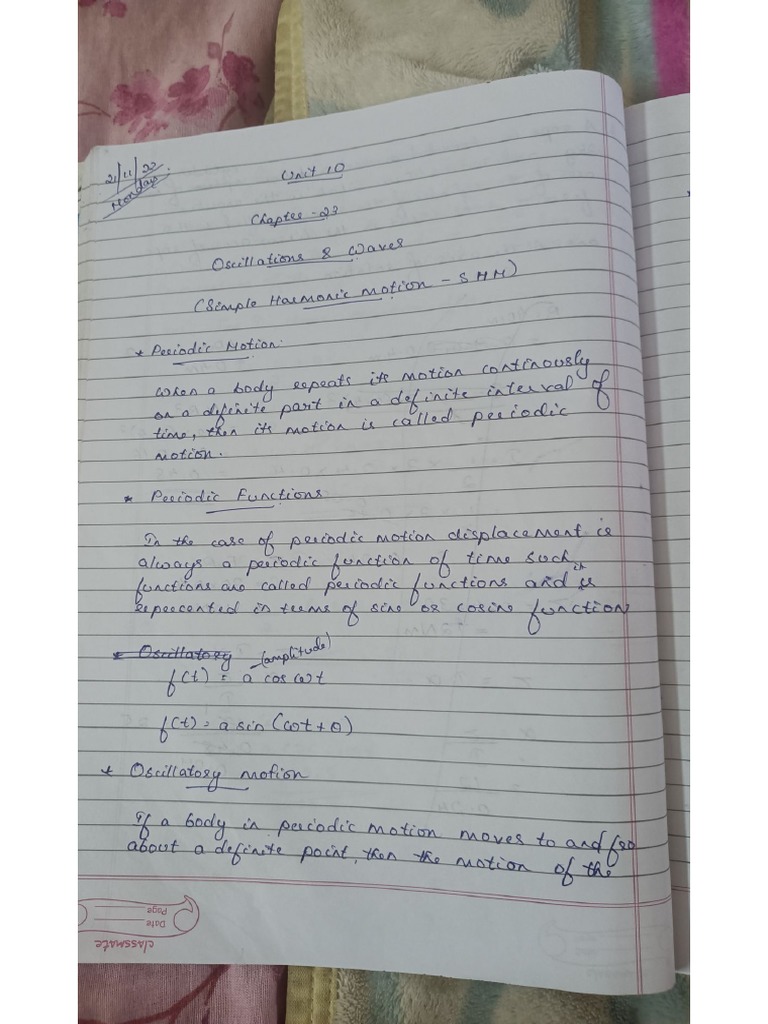 21/11/22
Monday
Unit 10
Chapter - 23
Oscillations & Waves
(Simple Harmonic Motion - SHM)
* Periodic Motion:
When a body repeats its motion continously
on a definite part in a definite interval of
time, then its motion is called periodic
motion.
* Periodic Functions
In the case of periodic motion displacement is
always a periodic function of time such
functions are called periodic functions and it is
repercented in terms of sine or cosine function
* Oscillatory (amplitude)
f(t) = a cos ωt
f(t) = a sin (ωt + θ)
* Oscillatory motion
If a body in periodic motion moves to and fro
about a definite point, then the motion of the
classmate
Date
Page